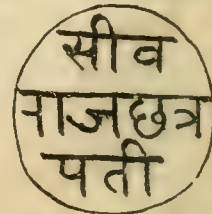 सीव
राजछत्र
पती